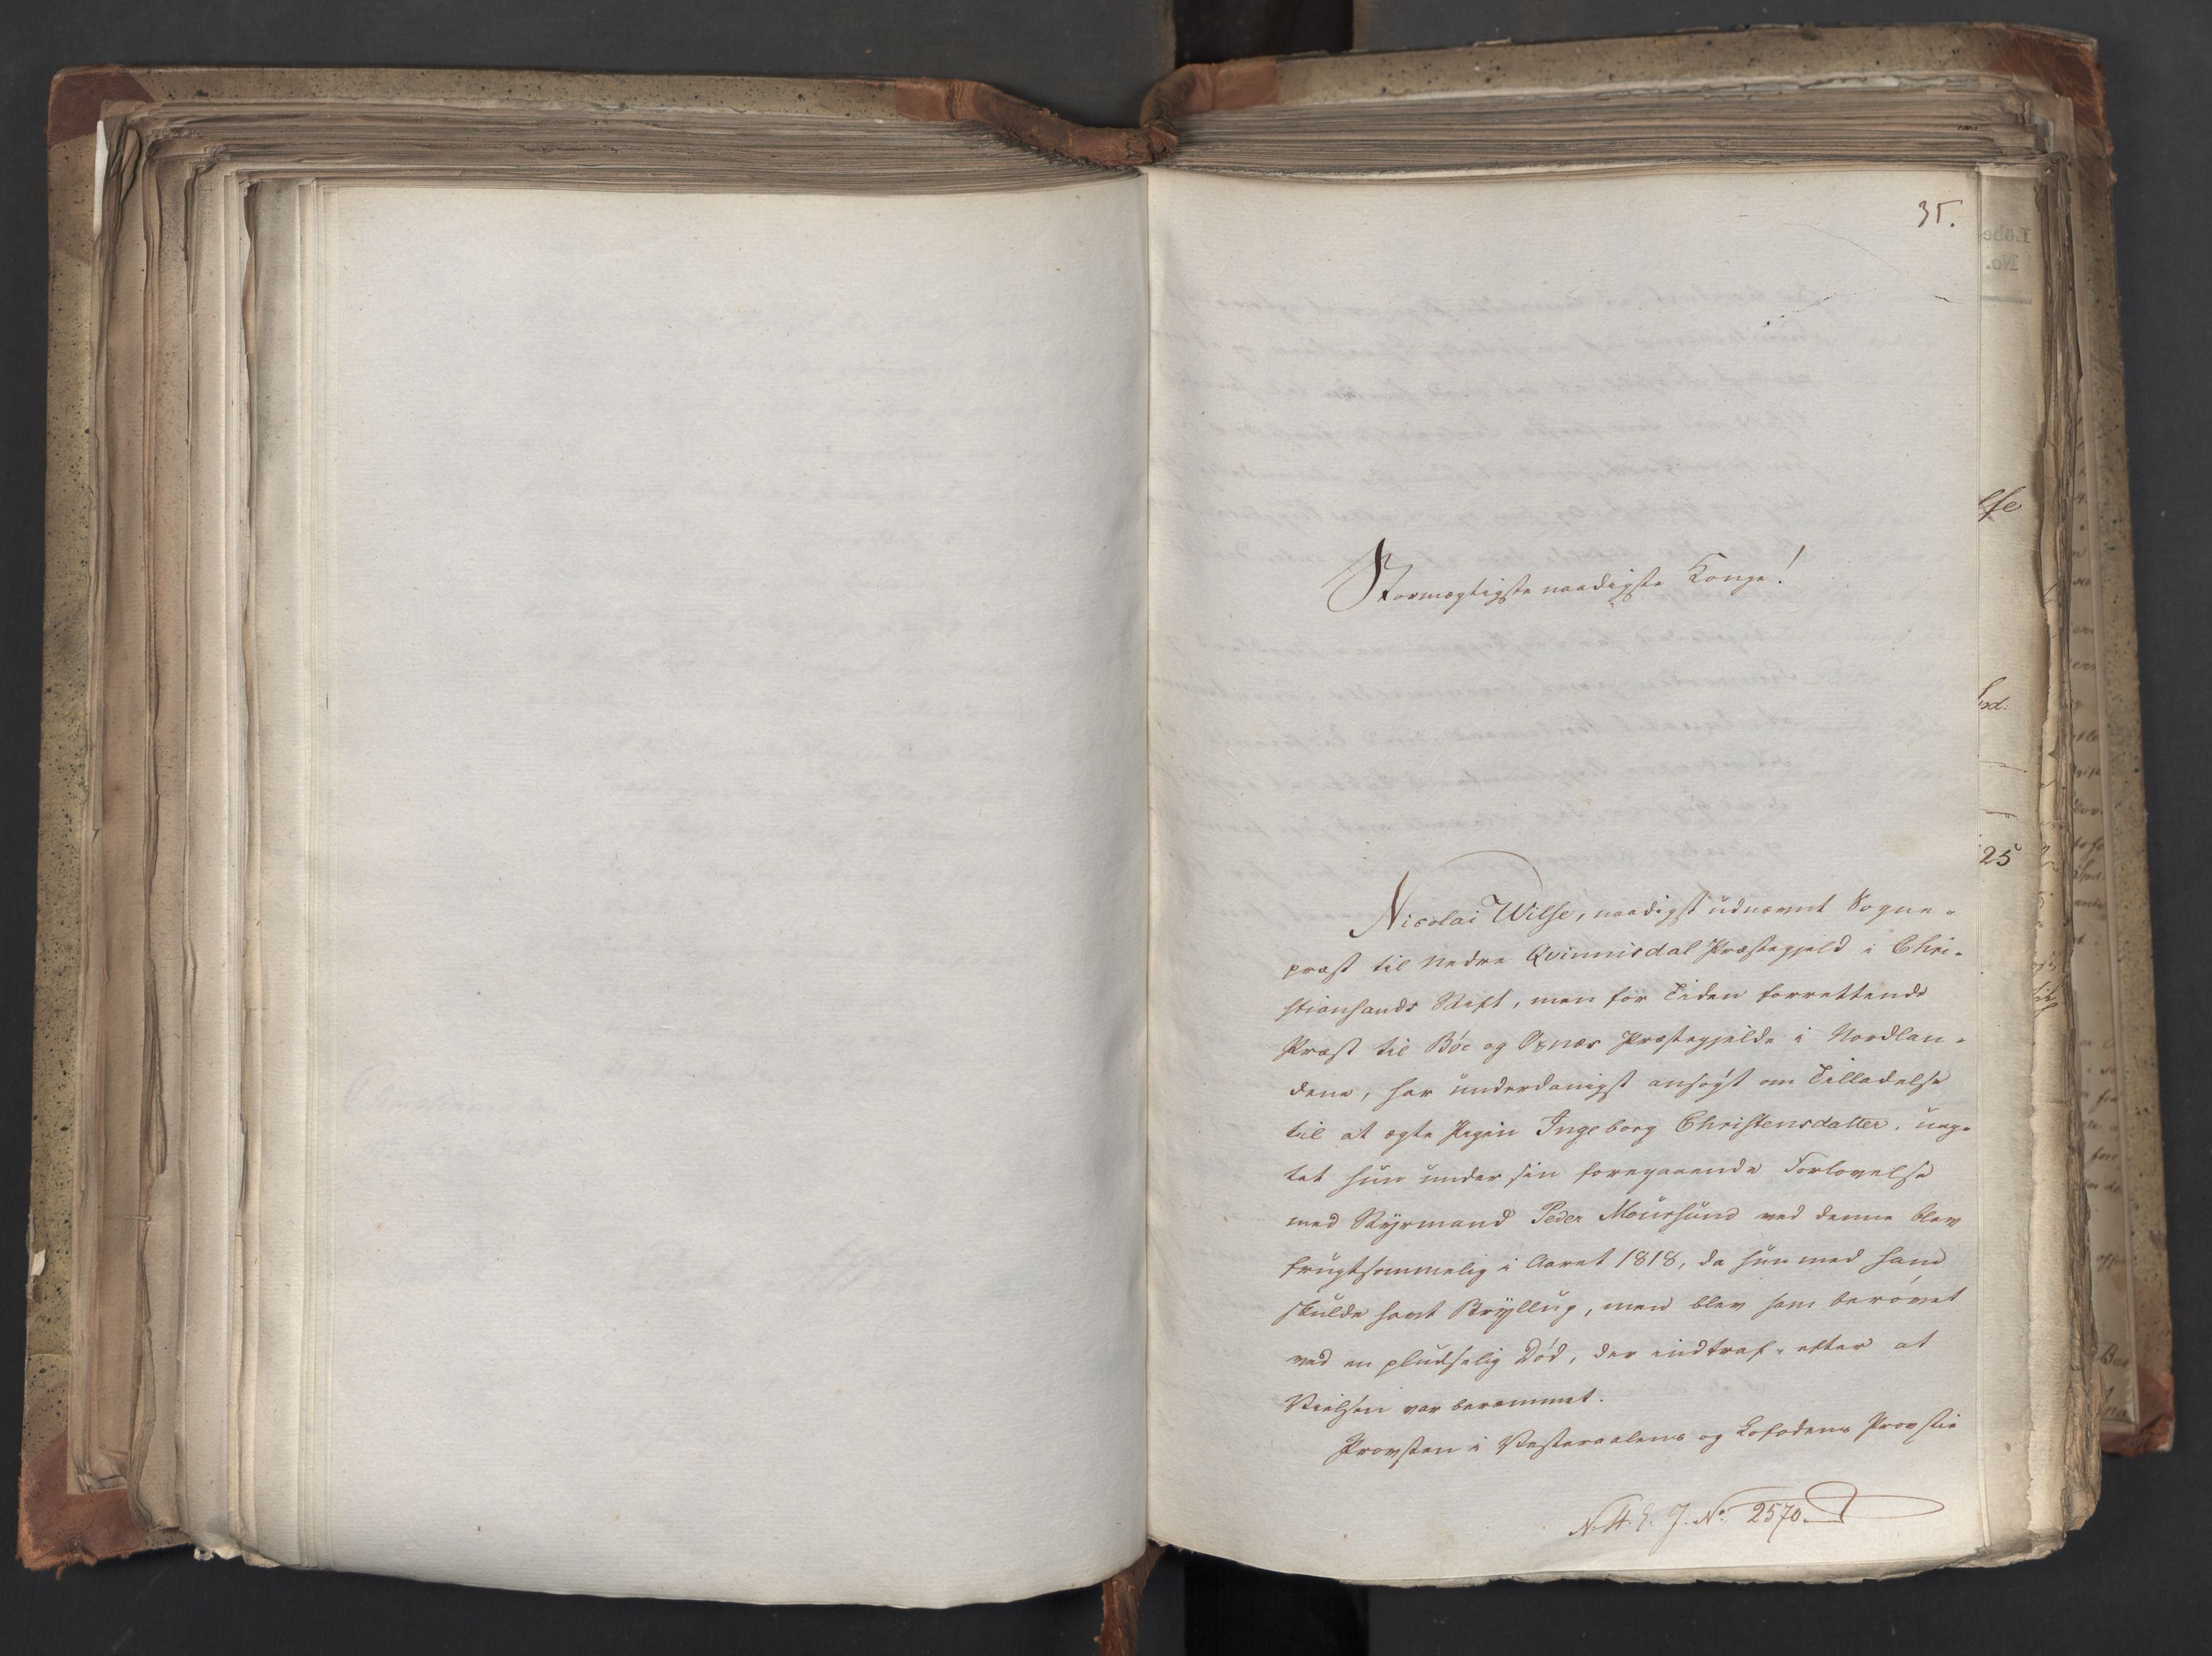 35.
Stormægtigste naadigste Konge!
Nicolai Wilse, naadigst udnævnt Sogne-
præst til Nedre Qvinnisdal Præstegjeld i Chri-
stiansands Stift, men for Tiden forrettende
Præst til Bøe og Øxnæs Præstegjelde i Nordlan-
dene, har underdanigst ansøgt om Tilladelse
til at ægte Pigen Ingeborg Christensdatter, uag-
tet hun under sin foregaaende Forlovelse
med Styrmand Peder Moursund ved denne blev
frugtsommelig i Aaret 1818, da hun med ham
skulde havt Bryllup, men blev ham berøvet
ved en pludselig Død, der indtraf, efter at
Vielsen var berammet.
Provsten i Vesteraalens og Lofodens Provstie
N. A. E. J. No. 2570.
lse
25